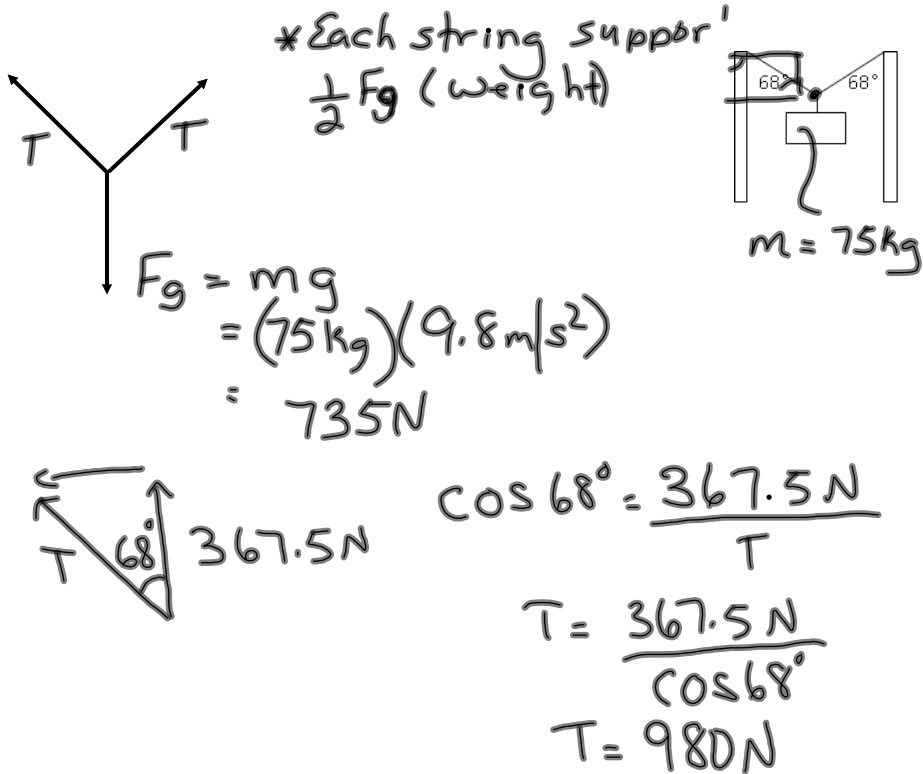 *Each string suppor'
1/2 Fg (weight)
68° 68°
T T
m = 75kg
Fg = mg
= (75kg)(9.8m/s²)
= 735N
cos68° = 367.5N / T
T 68° 367.5N
T = 367.5N / cos68°
T = 980N